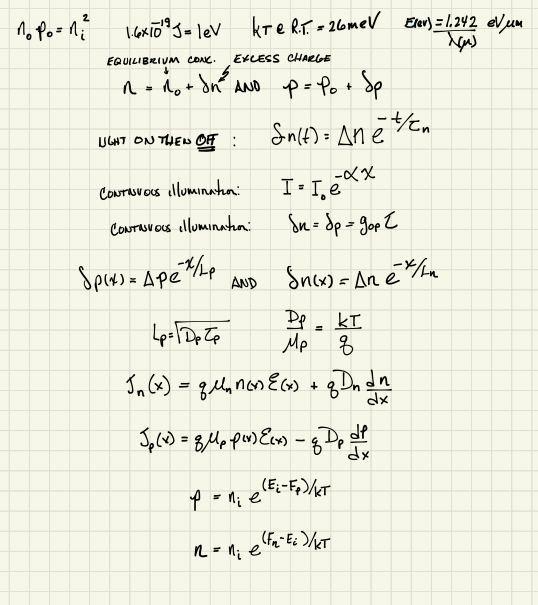 n₀ p₀ = nᵢ²   1.6x10⁻¹⁹ J = 1eV   kT @ R.T. = 26meV   E(eV) = 1.242/λ(μ) eV/μm
EQUILIBRIUM CONC. EXCESS CHARGE
n = n₀ + δn AND p = p₀ + δp
LIGHT ON THEN OFF : δn(t) = Δn e^(-t/τₙ)
CONTINUOUS illumination: I = I₀ e^(-αx)
CONTINUOUS illumination: δn = δp = g_op τ
δp(x) = Δp e^(-x/Lp) AND δn(x) = Δn e^(-x/Ln)
Lp = √(Dp τp)   Dp/μp = kT/q
Jn(x) = q μn n(x) ℰ(x) + q Dn dn/dx
Jp(x) = q μp p(x) ℰ(x) − q Dp dp/dx
p = nᵢ e^((Eᵢ-Fp)/kT)
n = nᵢ e^((Fn-Eᵢ)/kT)